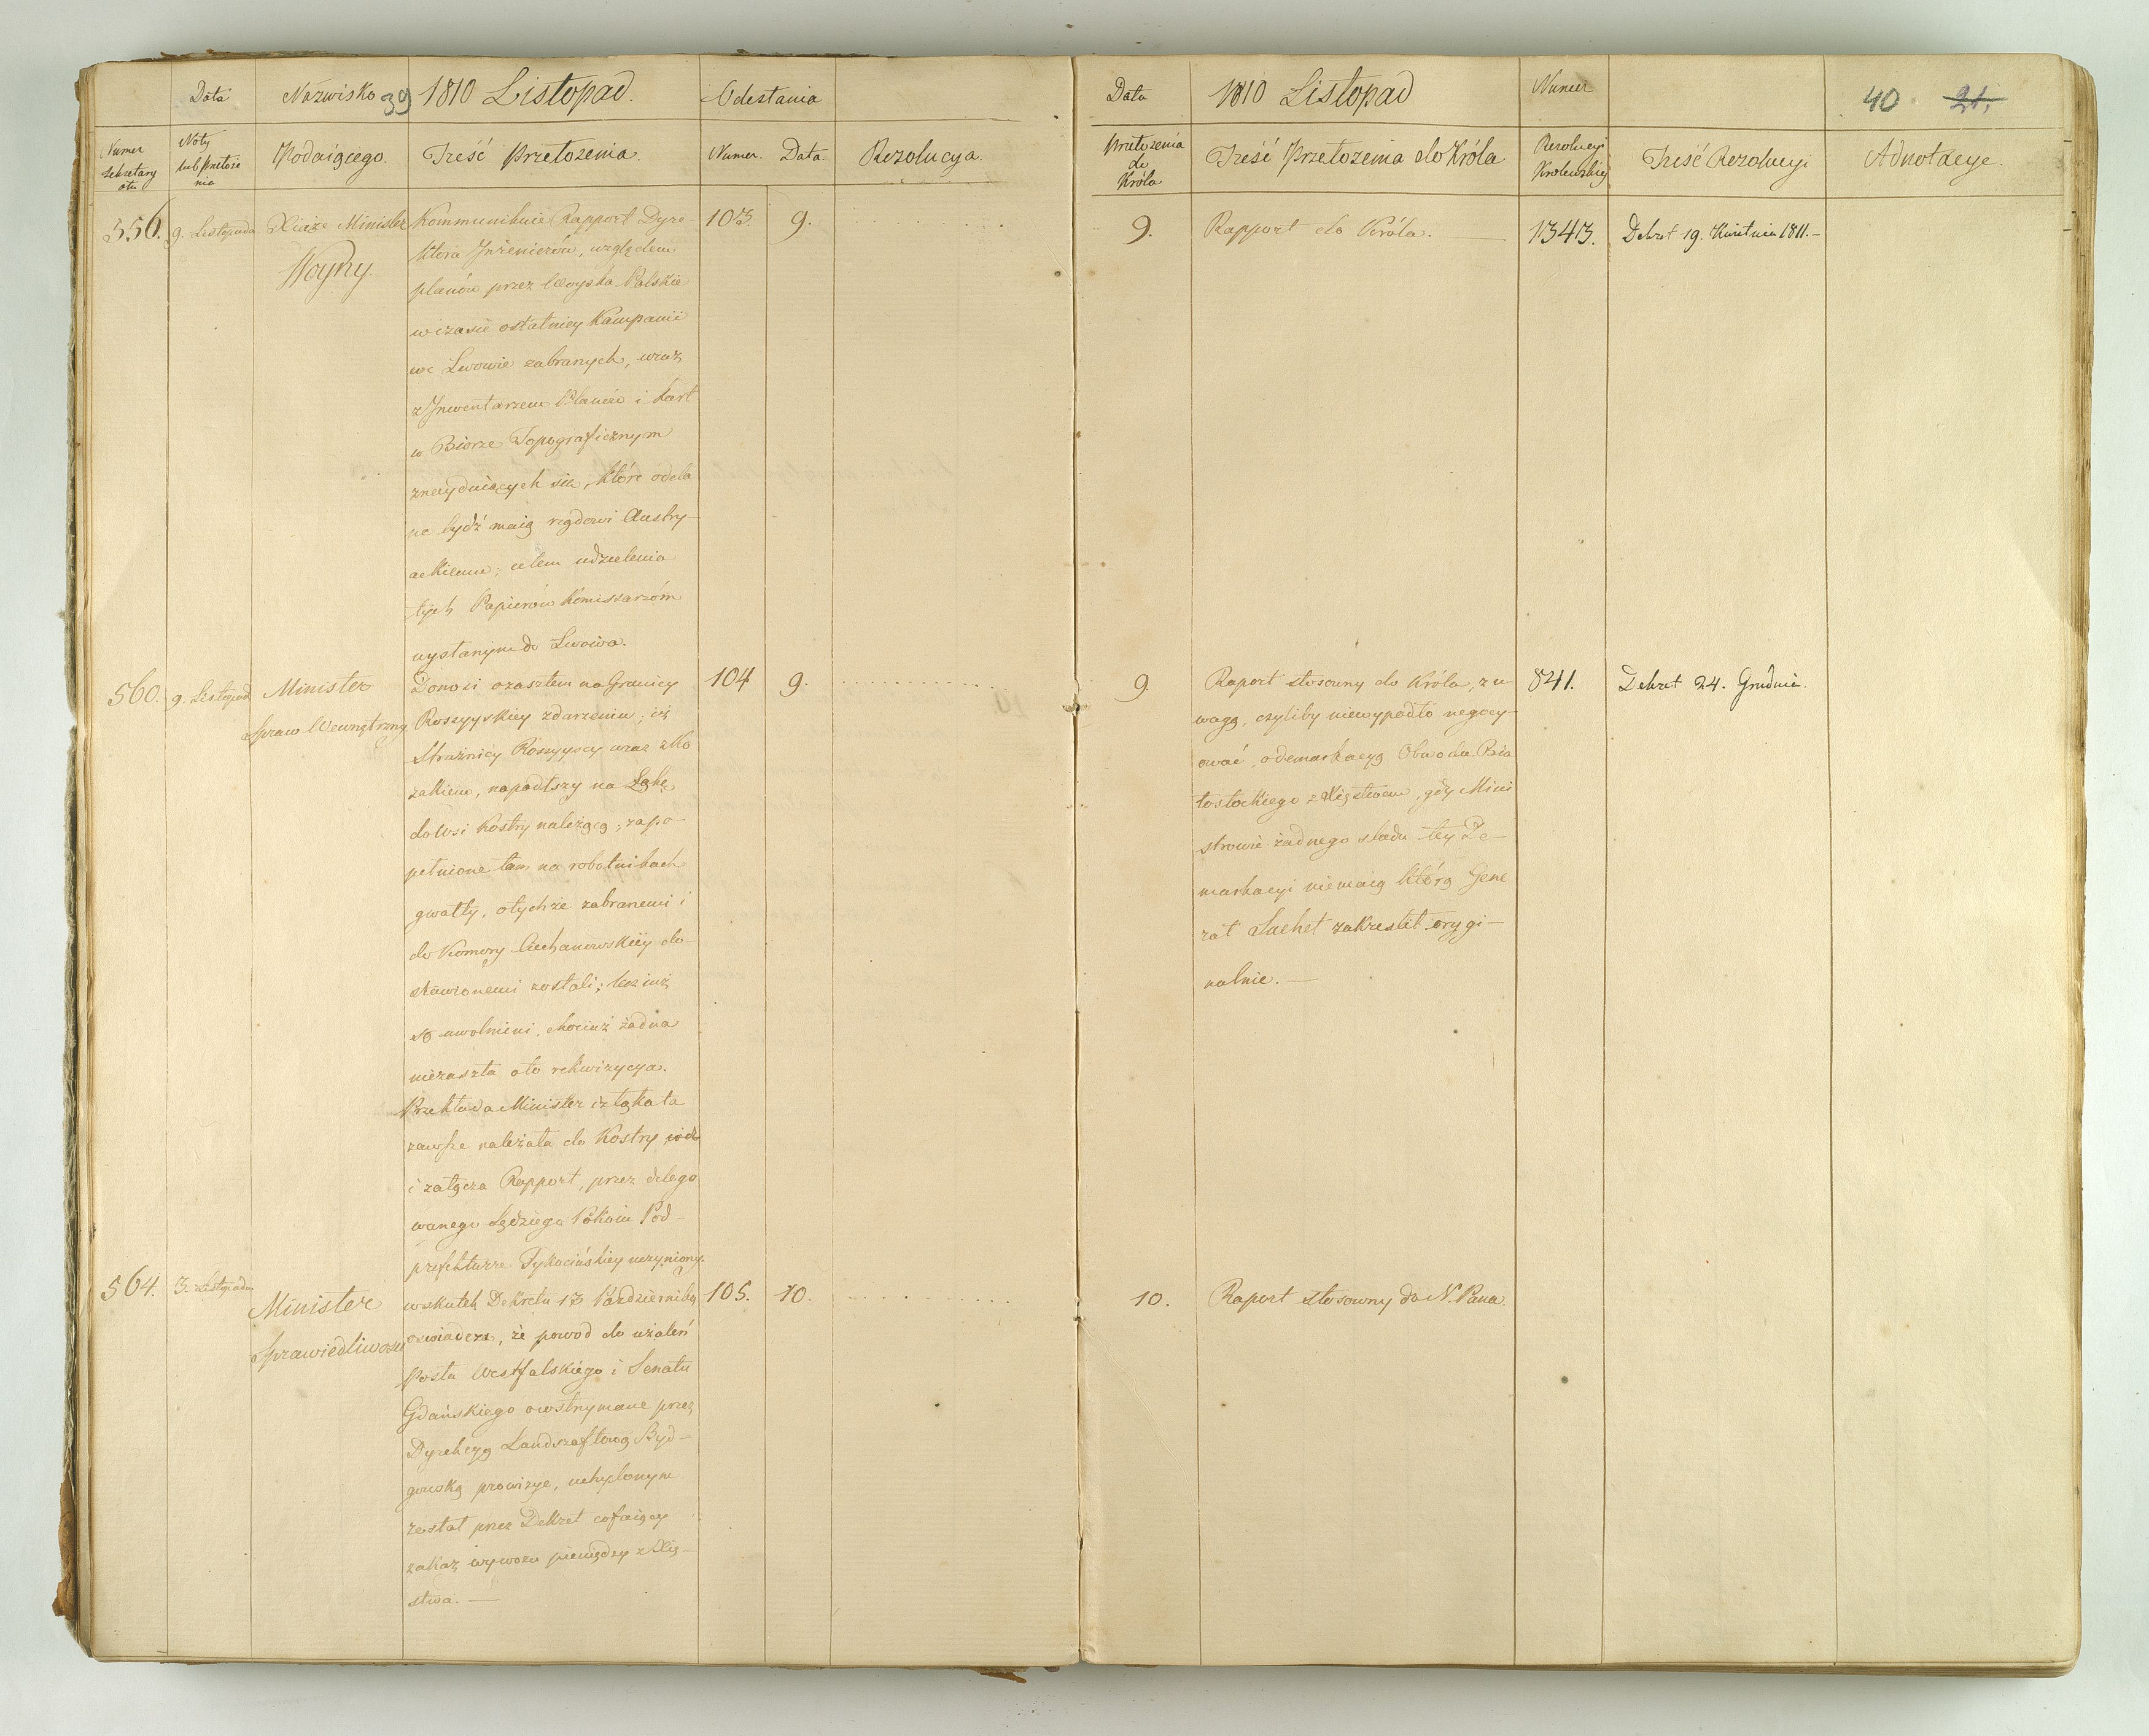 Data
Nazwisko
39
1810 Listopad.
Odesłania
Numer Sekretary otu
Noty lub Przełoże nia
Podaiącego.
Treść Przełożenia.
Numer.
Data
Rezolucya.
556.
9. Listopada
Xiąże Minister
Woyny.
Kommunikuie Rapport Dyre-
ktora Inżenierów, względem
planów przez Woyska Polskie
w czasie ostatniey Kampanii
we Lwowie zabranych, wraz
z Inwentarzem Planów i kart
w Biórze Topograficznym
znayduiących się, które odda
ne bydź maią rządowi Austry-
ackiemu; celem udzielenia
tych Papierów Komissarzóm
wysłanym do Lwowa.
103.
9.
560.
9. Listopad
Minister
Spraw Wewnętrzny
Donosi ozaszłem na Granicy
Rossyyskiey zdarzeniu; iż
Strażnicy Rossyyscy wraz z Ko
zakiem, napadłszy na Łąkę
do Wsi Kostry należącą; zapo-
pełnione tam na robotnikach
gwałty, otychże zabranemi i
do Komory Ciechanowskiey do-
stawionemi zostali; lecz iuż
są uwolnieni, chociaż żadna
niezaszła oto rekwizycya.
Przekłada Minister iż łąka ta
zawsze należała do Kostry
i załącza Rapport, przez delego
wanego Sędziego Pokoiu Pod-
prefekturze Tykocińskiey uczyniony.
104
9.
564.
3. Listopada
Minister
Sprawiedliwości
wskutek Dekretu 13 Października
oswiadcza, że powod do użaleń
Posła Westfalskiego i Senatu
Gdańskiego owstrzymane przez
Dyrekcyą Landszaftową Byd-
goską prowizye, uchylonym
został przez Dekret cofaiący
zakaz wywozu pieniędzy z Xię-
stwa.
105.
10.
Data
1810 Listopad
Numer
40
21.
Przełożenia do Króla
Treść Przełożenia do Króla
Rezolucyi Krolewskiey
Treść Rezolucyi
Adnotacye.
9.
Rapport do Króla.
1343.
Dekret 19. Kwietnia 1811.
9.
Raport stosowny do Króla, z u
wagą, czyliby niewypadło negocy-
ować, odemarkacyą Obwodu Bia
łostockiego z Xięstwem, gdy Mini
strowie żadnego sladu tey De-
markacyi niemaią którą Gene
rał Suchet zakreslił orygi-
nalnie.
841.
Dekret 24. Grudnia.
10.
Raport stosowny do N. Pana.